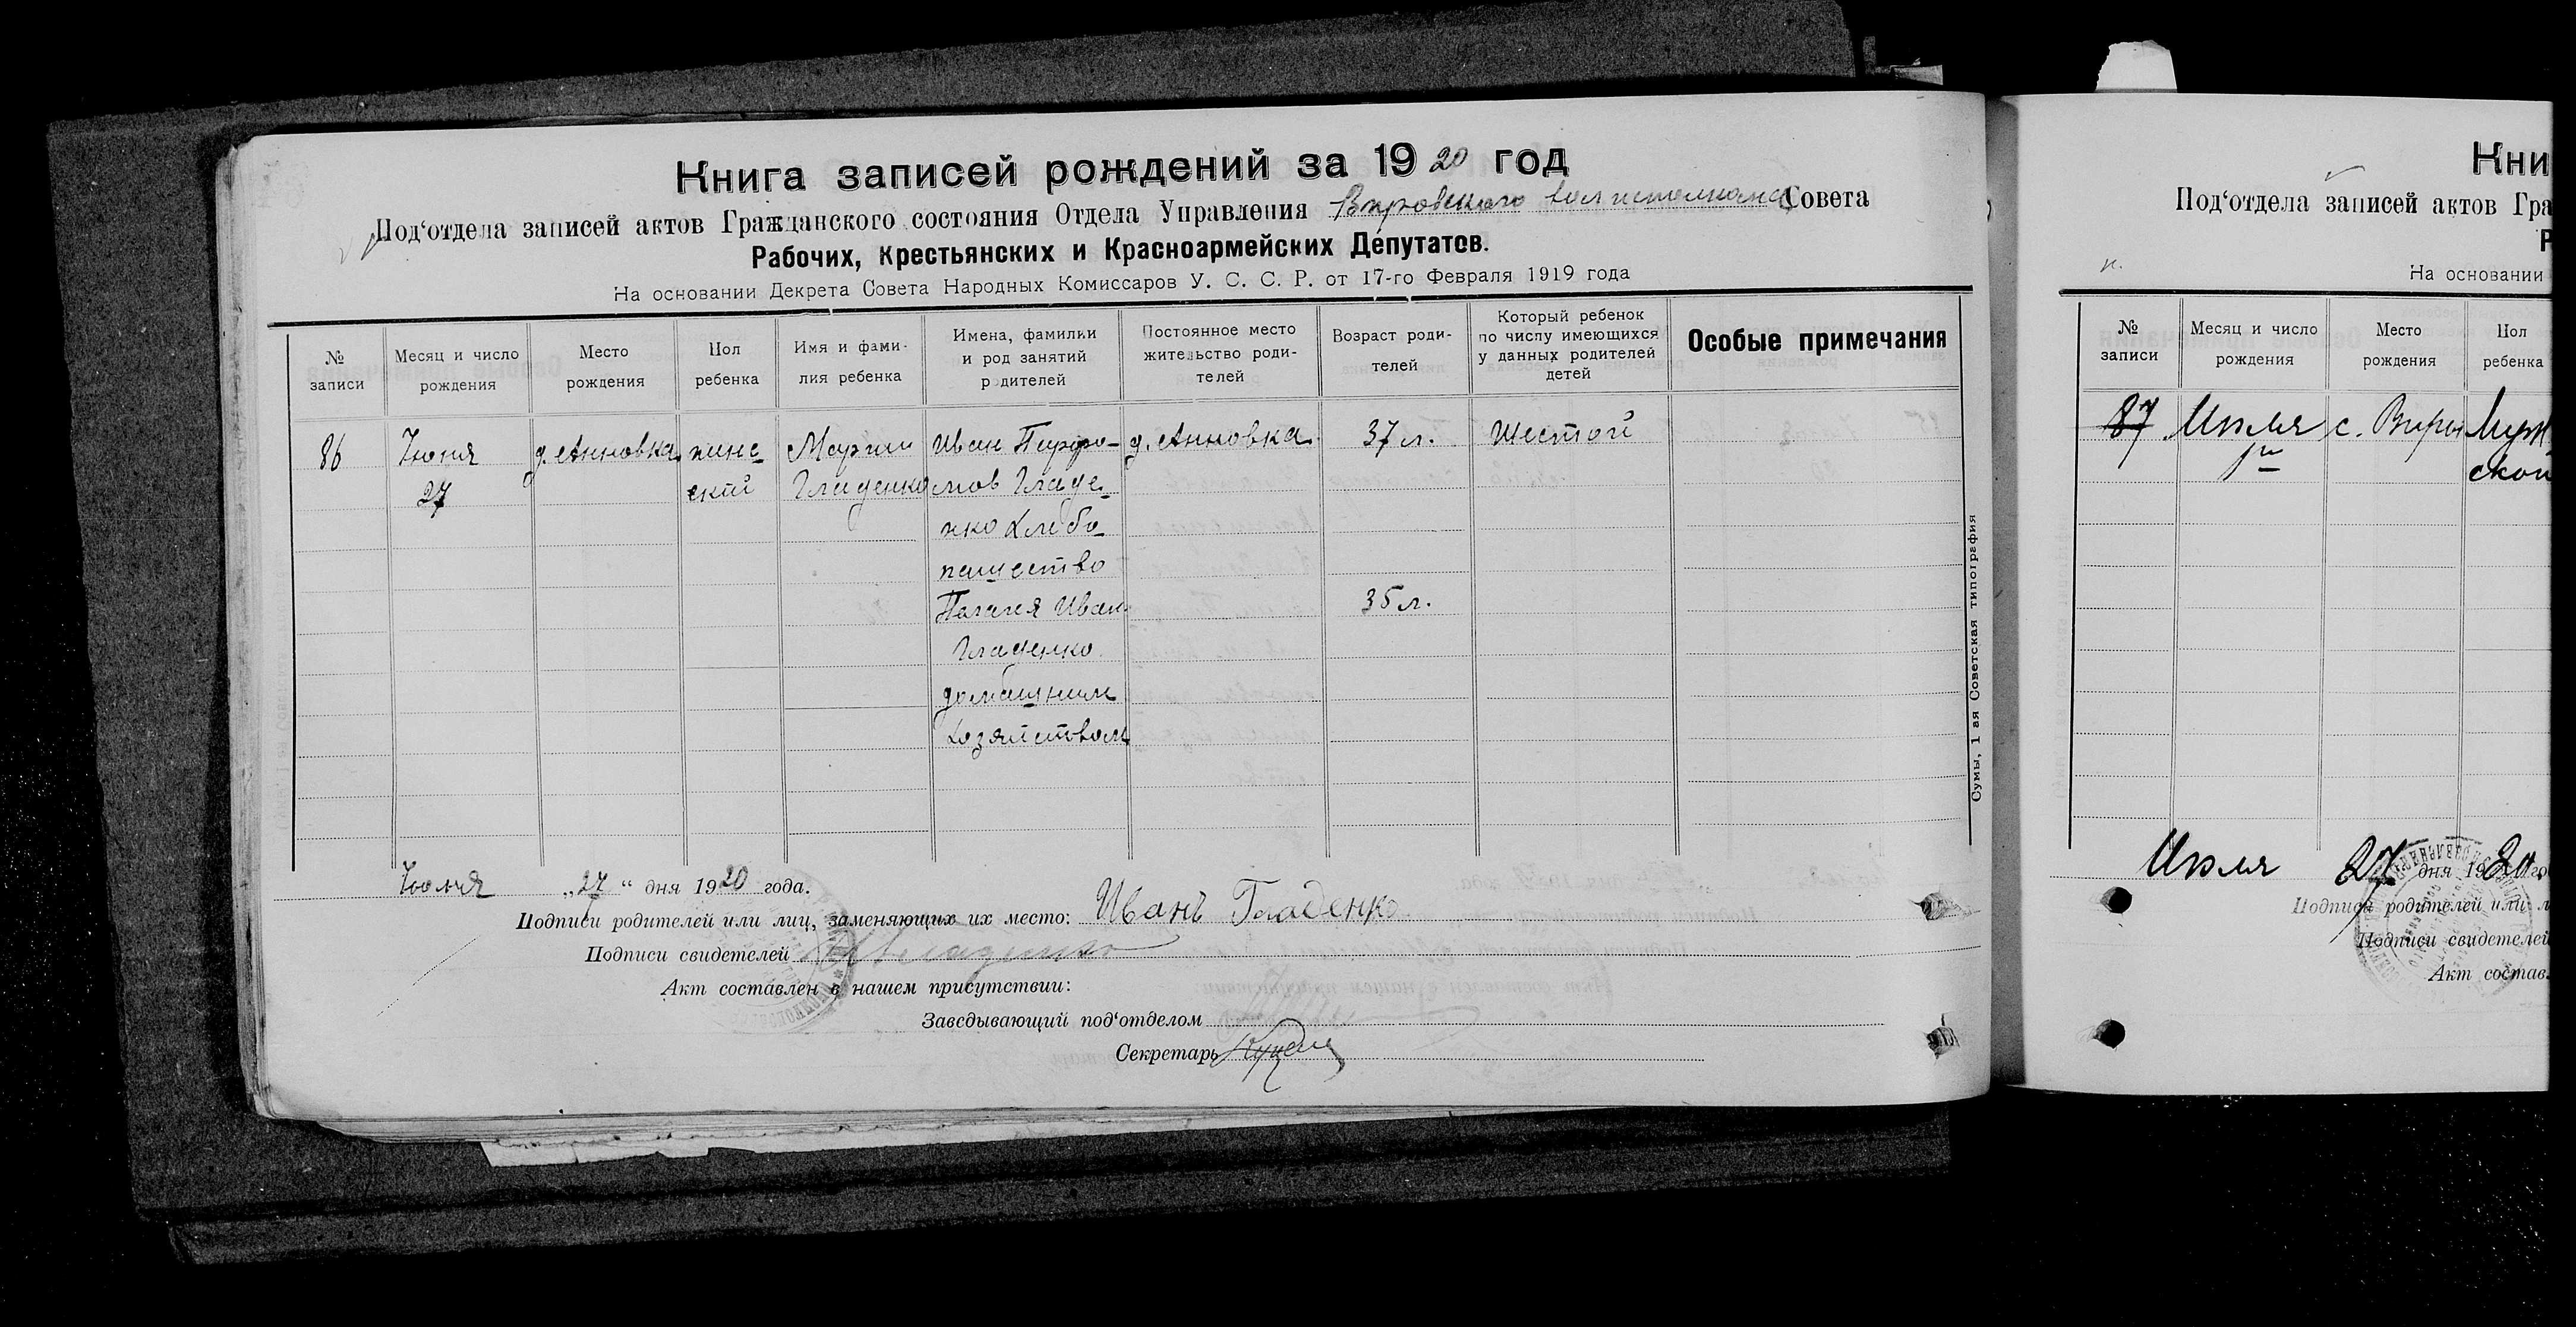 Книга записей рождений за 1920 год
Под‘отдела записей актов Гражданского состояния Отдела Управления Вировского волисполкома Совета
Рабочих, Крестьянских и Красноармейских Депутатов.
На основании Декрета Совета Народных Комиссаров У. С. С. Р. от 17-го Февраля 1919 года
№ записи
Месяц и число рождения
Место рождения
Пол ребенка
Имя и фами- лия ребенка
Имена, фамилии и род занятий родителей
Постоянное место жительство роди- телей
Возраст роди- телей
Который ребенок по числу имеющихся у данных родителей детей
Особые примечания
86 Июня д. Анновка женс Иван д. Анновка. 37 л. Шестой
27 ский Гладенко мов Гладе-
нко Хлебо
пашество
Иван. 35 л.
Гладенко
домашним
хозяйством
"27" дня 1920 года.
Подписи родителей или лиц, заменяющих их место: Иванъ Гладенко
Подписи свидетелей
Акт составлен в нашем присутствии:
Заведывающий под‘отделом
Секретарь
Сумы, 1 ая Советская типография
Кни
Под‘отдела записей актов Гра
Р
На основании
№ записи
Месяц и число рождения
Место рождения
Пол ребенка
87 Июля с. Виры Муж
ской
Июля 27 дня 1920 го
Подписи родителей или л
Подписи свидетелей
Акт состав